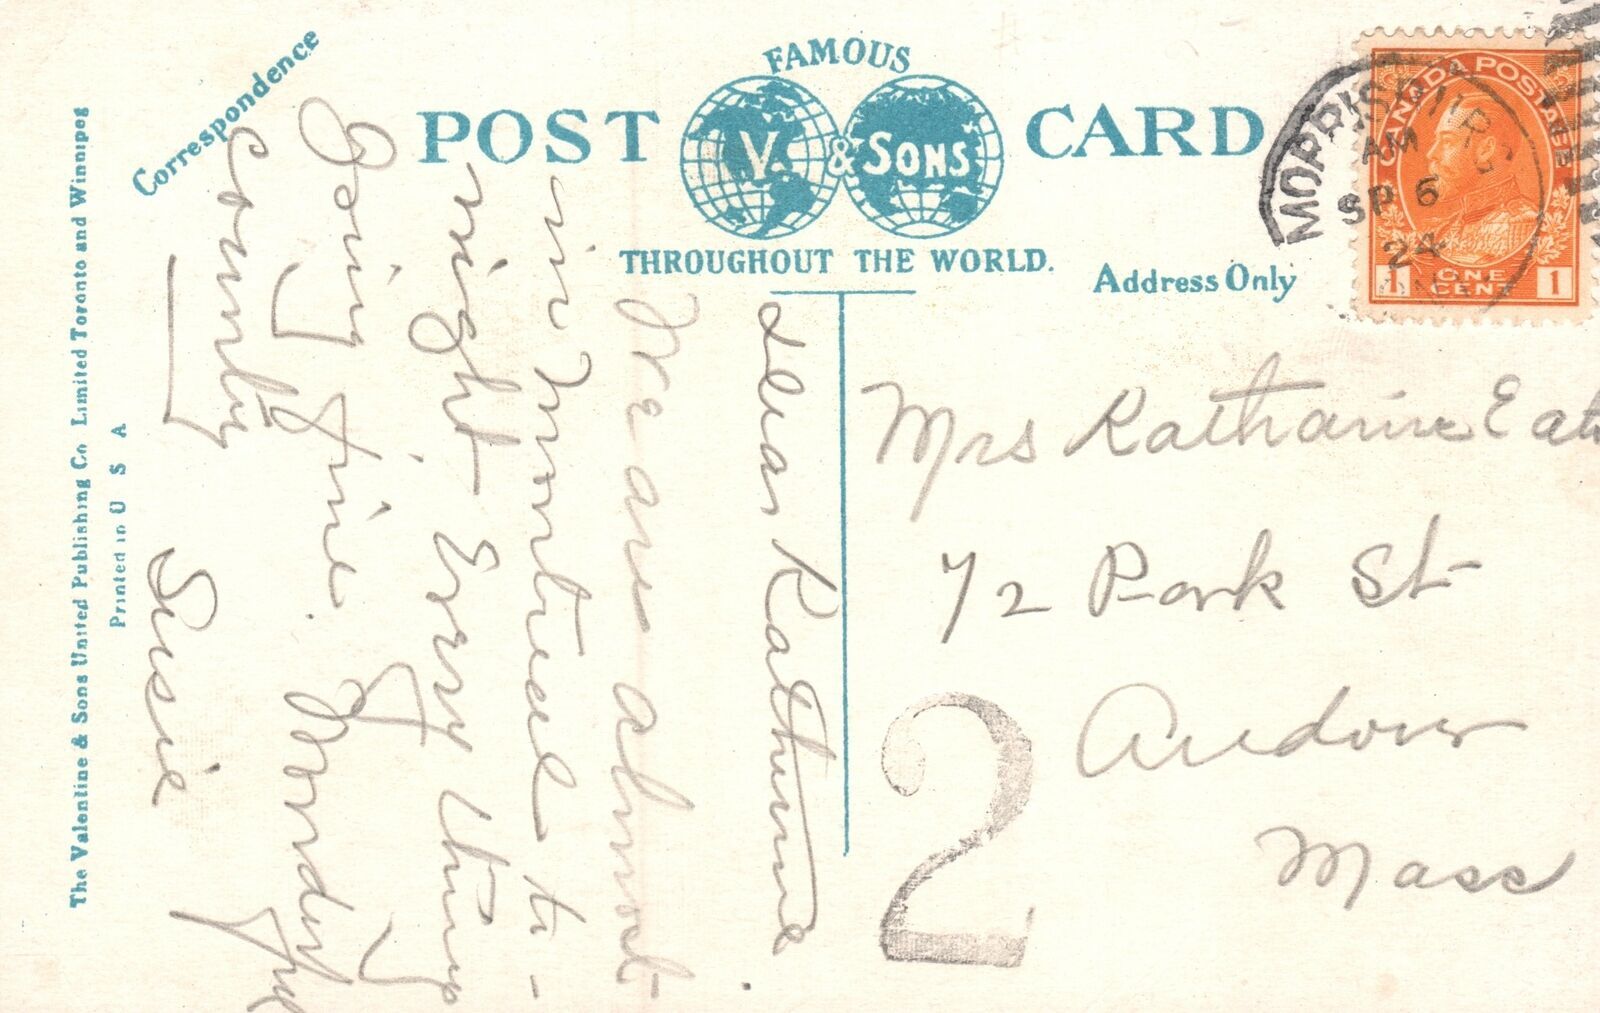 Correspondence
FAMOUS
POST CARD
V. & SONS
THROUGHOUT THE WORLD.
Address Only
The Valentine & Sons United Publishing Co Limited Toronto and Winnipeg
Printed in U S A
CANADA POSTAGE
1 ONE CENT 1
MORRISBURG
AM
SP 6
24
ONT
Dear Katherine
We are almost
in Montreal to-
night. Every thing
Going fine. Wonderful
country
Susie
Mrs Katharine Eat
72 Park St
Andover
Mass
2